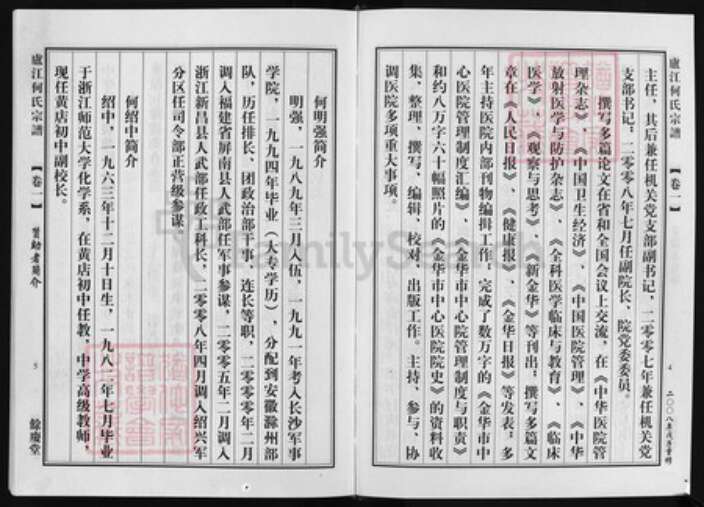 廬江何氏宗譜
【卷一】
4
二〇〇八年戊子重修
主任，其后兼任机关党支部副书记，二零零七年兼任机关党
支部书记；二零零八年七月任副院长、院党委委员。
撰写多篇论文在省和全国会议上交流，在《中华医院管
理杂志》、《中国卫生经济》、《中国医院管理》、《中华
放射医学与防护杂志》、《全科医学临床与教育》、《临床
医学》、《观察与思考》、《新金华》等刊出；撰写多篇文
章在《人民日报》、《健康报》、《金华日报》等发表；多
年主持医院内部刊物编辑工作，完成了数万字的《金华市中
心医院管理制度汇编》、《金华市中心医院管理制度与职责》
和约八万字六十幅照片的《金华市中心医院院史》的资料收
集、整理、撰写、编辑、校对、出版工作。主持、参与、协
调医院多项重大事项。
何明强简介
明强，一九八九年三月入伍，一九九一年考入长沙军事
学院，一九九四年毕业（大专学历），分配到安徽滁州部
队，历任排长、团政治部干事、连长等职，二零零零年二月
调入福建省屏南县人武部任军事参谋，二零零五年二月调入
浙江新昌县人武部任政工科长，二零零八年四月调入绍兴军
分区任司令部正营级参谋。
何绍中简介
绍中，一九六三年十二月十日生，一九八二年七月毕业
于浙江师范大学化学系，在黄店初中任教，中学高级教师，
现任黄店初中副校长。
廬江何氏宗譜
【卷一】
贊助者簡介
5
餘慶堂
FamilySearch